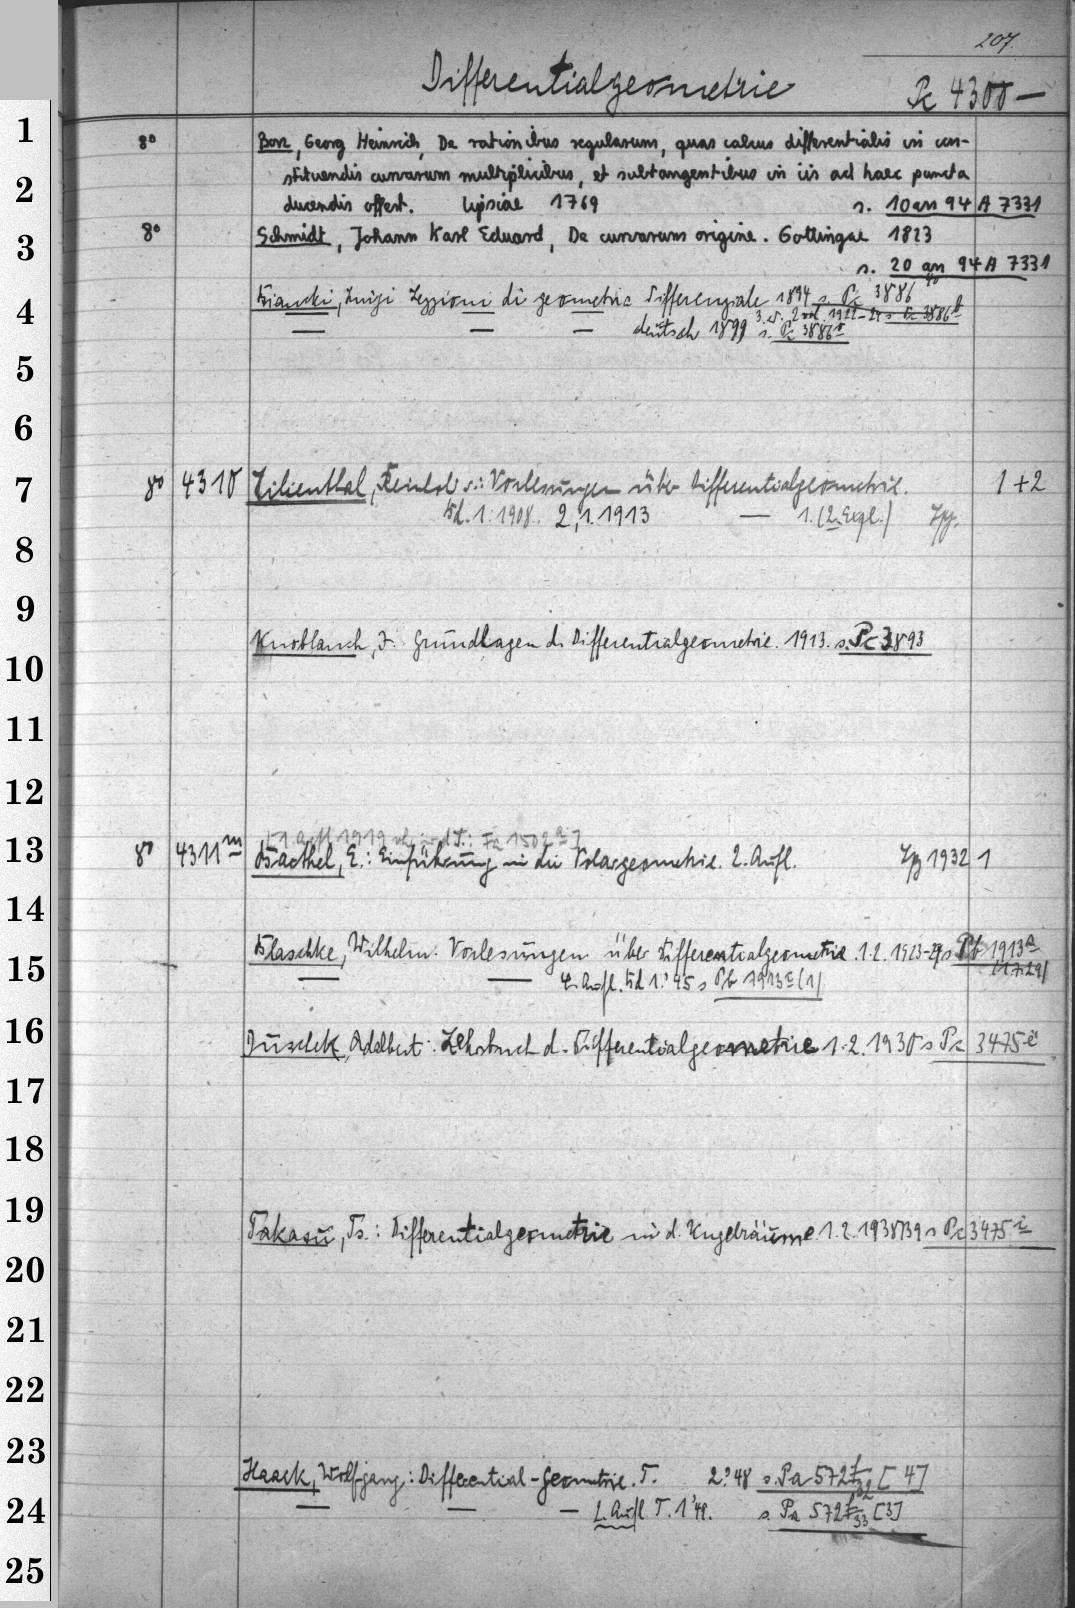 207.
Differentialgeometrie Pc 4300 —
1
8° Borz, Georg Heinrich, De rationibus regularum, quas calcus differentialis in con-
2 stituendis curvarum multiplicibus, et subtangentibus in iis ad haec puncta
ducendis offert. Lipsiae 1769 s. 10 an 94 A 7331
3 8° Schmidt, Johann Karl Eduard, De curvarum origine. Gottingae 1823
s. 20 an 94 A 7331
4 Bianchi, Luigi Lezzioni di geometria differenziale 1894 s. Pc 3886
3. ed. 2 vol. 1922-24 s Pc 3886
— — — deutsch 1899 s. Pc 3886
5
6
7 8° 4310 Lilienthal, Reinhold v.: Vorlesungen über Differentialgeometrie. 1+2
Bd. 1. 1908. 2,1. 1913 — 1. (2. Expl.) Lpz.
8
9
Knoblauch, J. Grundlagen d. Differentialgeometrie. 1913. s. Pc 3893
10
11
12
[1. Aufl 1919
13 8° 4311ᵐ Barthel, E.: Einführung in die Polargeometrie. 2. Aufl. Lpz 1932 1
14
Blaschke, Wilhelm: Vorlesungen über Differentialgeometrie. 1.2. 1923-29 s Pb 1913ᵃ
(17.29)
15 — — 4. Aufl. Bd 1.'45 s Pb 1913ᶜ (1)
16 Duschek, Adalbert: Lehrbuch d. Differentialgeometrie 1.2. 1930 s Pc 3475ᵉ
17
18
19
Takasu, Ts.: Differentialgeometrie in d. Kugelräume. 1.2. 1938/39 s Pc 3475ⁱ
20
21
22
23
Haack, Wolfgang: Differential-Geometrie. T. 2.'48 s. Pa 572 [4]
24 — — — 2. Aufl T. 1'49. s. Pa 572 33 [3]
25